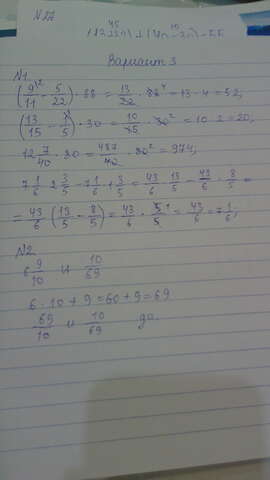 Вариант 3
N1
(9/11 - 5/22) · 88 = 13/22 · 88 = 13 · 4 = 52,
(13/15 - 1/5) · 30 = 10/15 · 30 = 10 · 2 = 20,
12 7/40 · 80 = 487/40 · 80 = 974,
7 1/6 · 2 3/5 - 7 1/6 · 1 3/5 = 43/6 · 13/5 - 43/6 · 8/5 =
= 43/6 (13/5 - 8/5) = 43/6 · 5/5 = 43/6 = 7 1/6,
N2
6 9/10 и 10/69
6 · 10 + 9 = 60 + 9 = 69
69/10 и 10/69 да